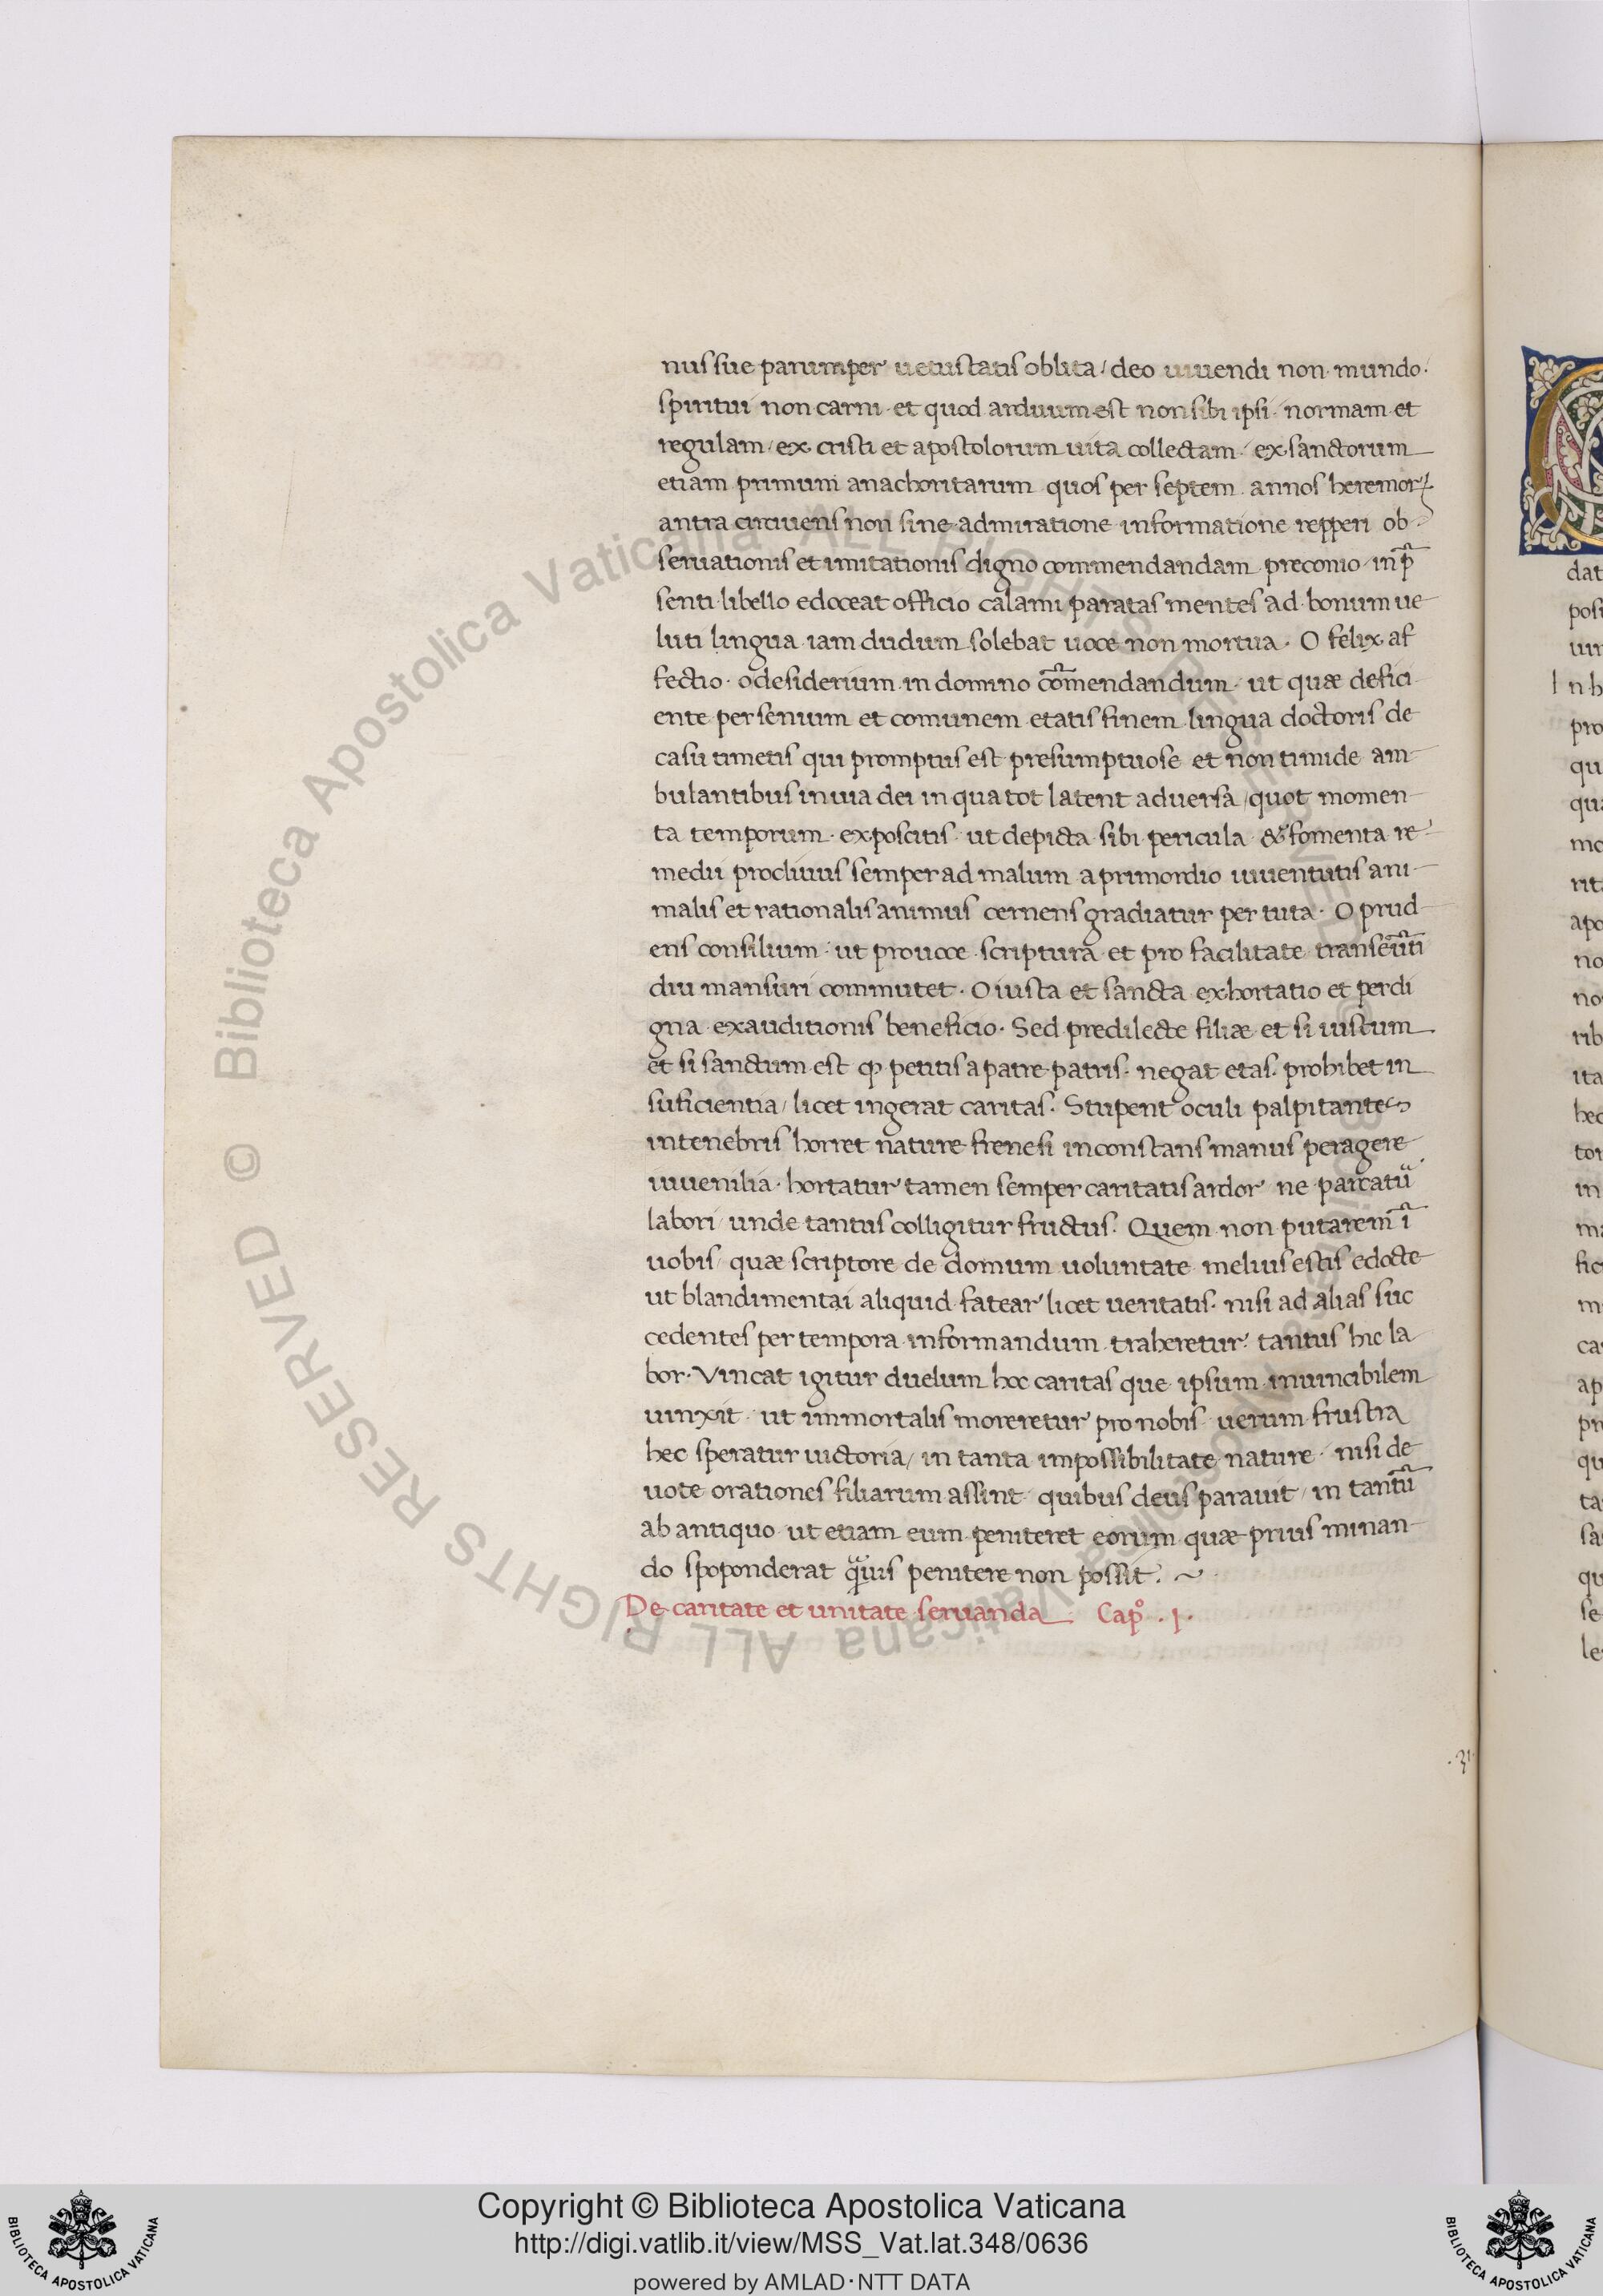 nus sue parumper uetustatis oblita / deo uiuendi non mundo ·
spiritui non carni · et quod arduum est non sibi ipsi · normam et
regulam / ex cristi et apostolorum uita collectam · ex sanctorum
etiam primum anachoritarum quos per septem annos heremorꝝ
antra circuiens non sine admiratione informatione repperi ob
seruationis et imitationis digno commendandam preconio / in p̄
senti libello edoceat officio calami paratas mentes ad bonum ue
luti lingua iam dudum solebat uoce non mortua · O felix af
fectio · o desiderium in domino cōmendandum · ut quæ defici
ente per senium et comunem etatis finem lingua doctoris de
casu timetis qui promptus est presumptuose et non timide am
bulantibus in uia dei in qua tot latent aduersa / quot momen
ta temporum · exposcitis · ut depicta sibi pericula & fomenta re
medii procliuus semper ad malum a primordio iuuentutis ani
malis et rationalis animus cernens gradiatur per tuta · O prud
ens consilium · ut pro uoce scriptura et pro facilitate transeūti
diu mansuri commutet · O iusta et sancta exhortatio et perdi
gna exauditionis beneficio · Sed predilecte filiæ et si iustum
et si sanctum est ꝙ petitis a patre patris · negat etas · prohibet in
suficientia / licet ingerat caritas · Stupent oculi palpitantes
in tenebris horret nature frenesi inconstans manus peragere
iuuenilia · hortatur tamen semper caritatis ardor ne parcatū
labori / unde tantus colligitur fructus · Quem non putarem ī
uobis / quæ scriptore de domum uoluntate melius estis edocte
ut blandimentai aliquid fatear licet ueritatis · nisi ad alias suc
cedentes per tempora informandum traheretur tantus hic la
bor · Vincat igitur duelum hoc caritas que ipsum inuincibilem
uinxit · ut immortalis moreretur pro nobis · uerum frustra
hec speratur uictoria / in tanta impossibilitate nature · nisi de
uote orationes filiarum assint · quibus deus parauit / in tantū
ab antiquo ut etiam eum peniteret eorum quæ prius minan
do spoponderat q̄uis penitere non possit · ~
De caritate et unitate seruanda Capº · 1 ·
Copyright © Biblioteca Apostolica Vaticana
http://digi.vatlib.it/view/MSS_Vat.lat.348/0636
powered by AMLAD·NTT DATA
BIBLIOTECA APOSTOLICA VATICANA
BIBLIOTECA APOSTOLICA VATICANA